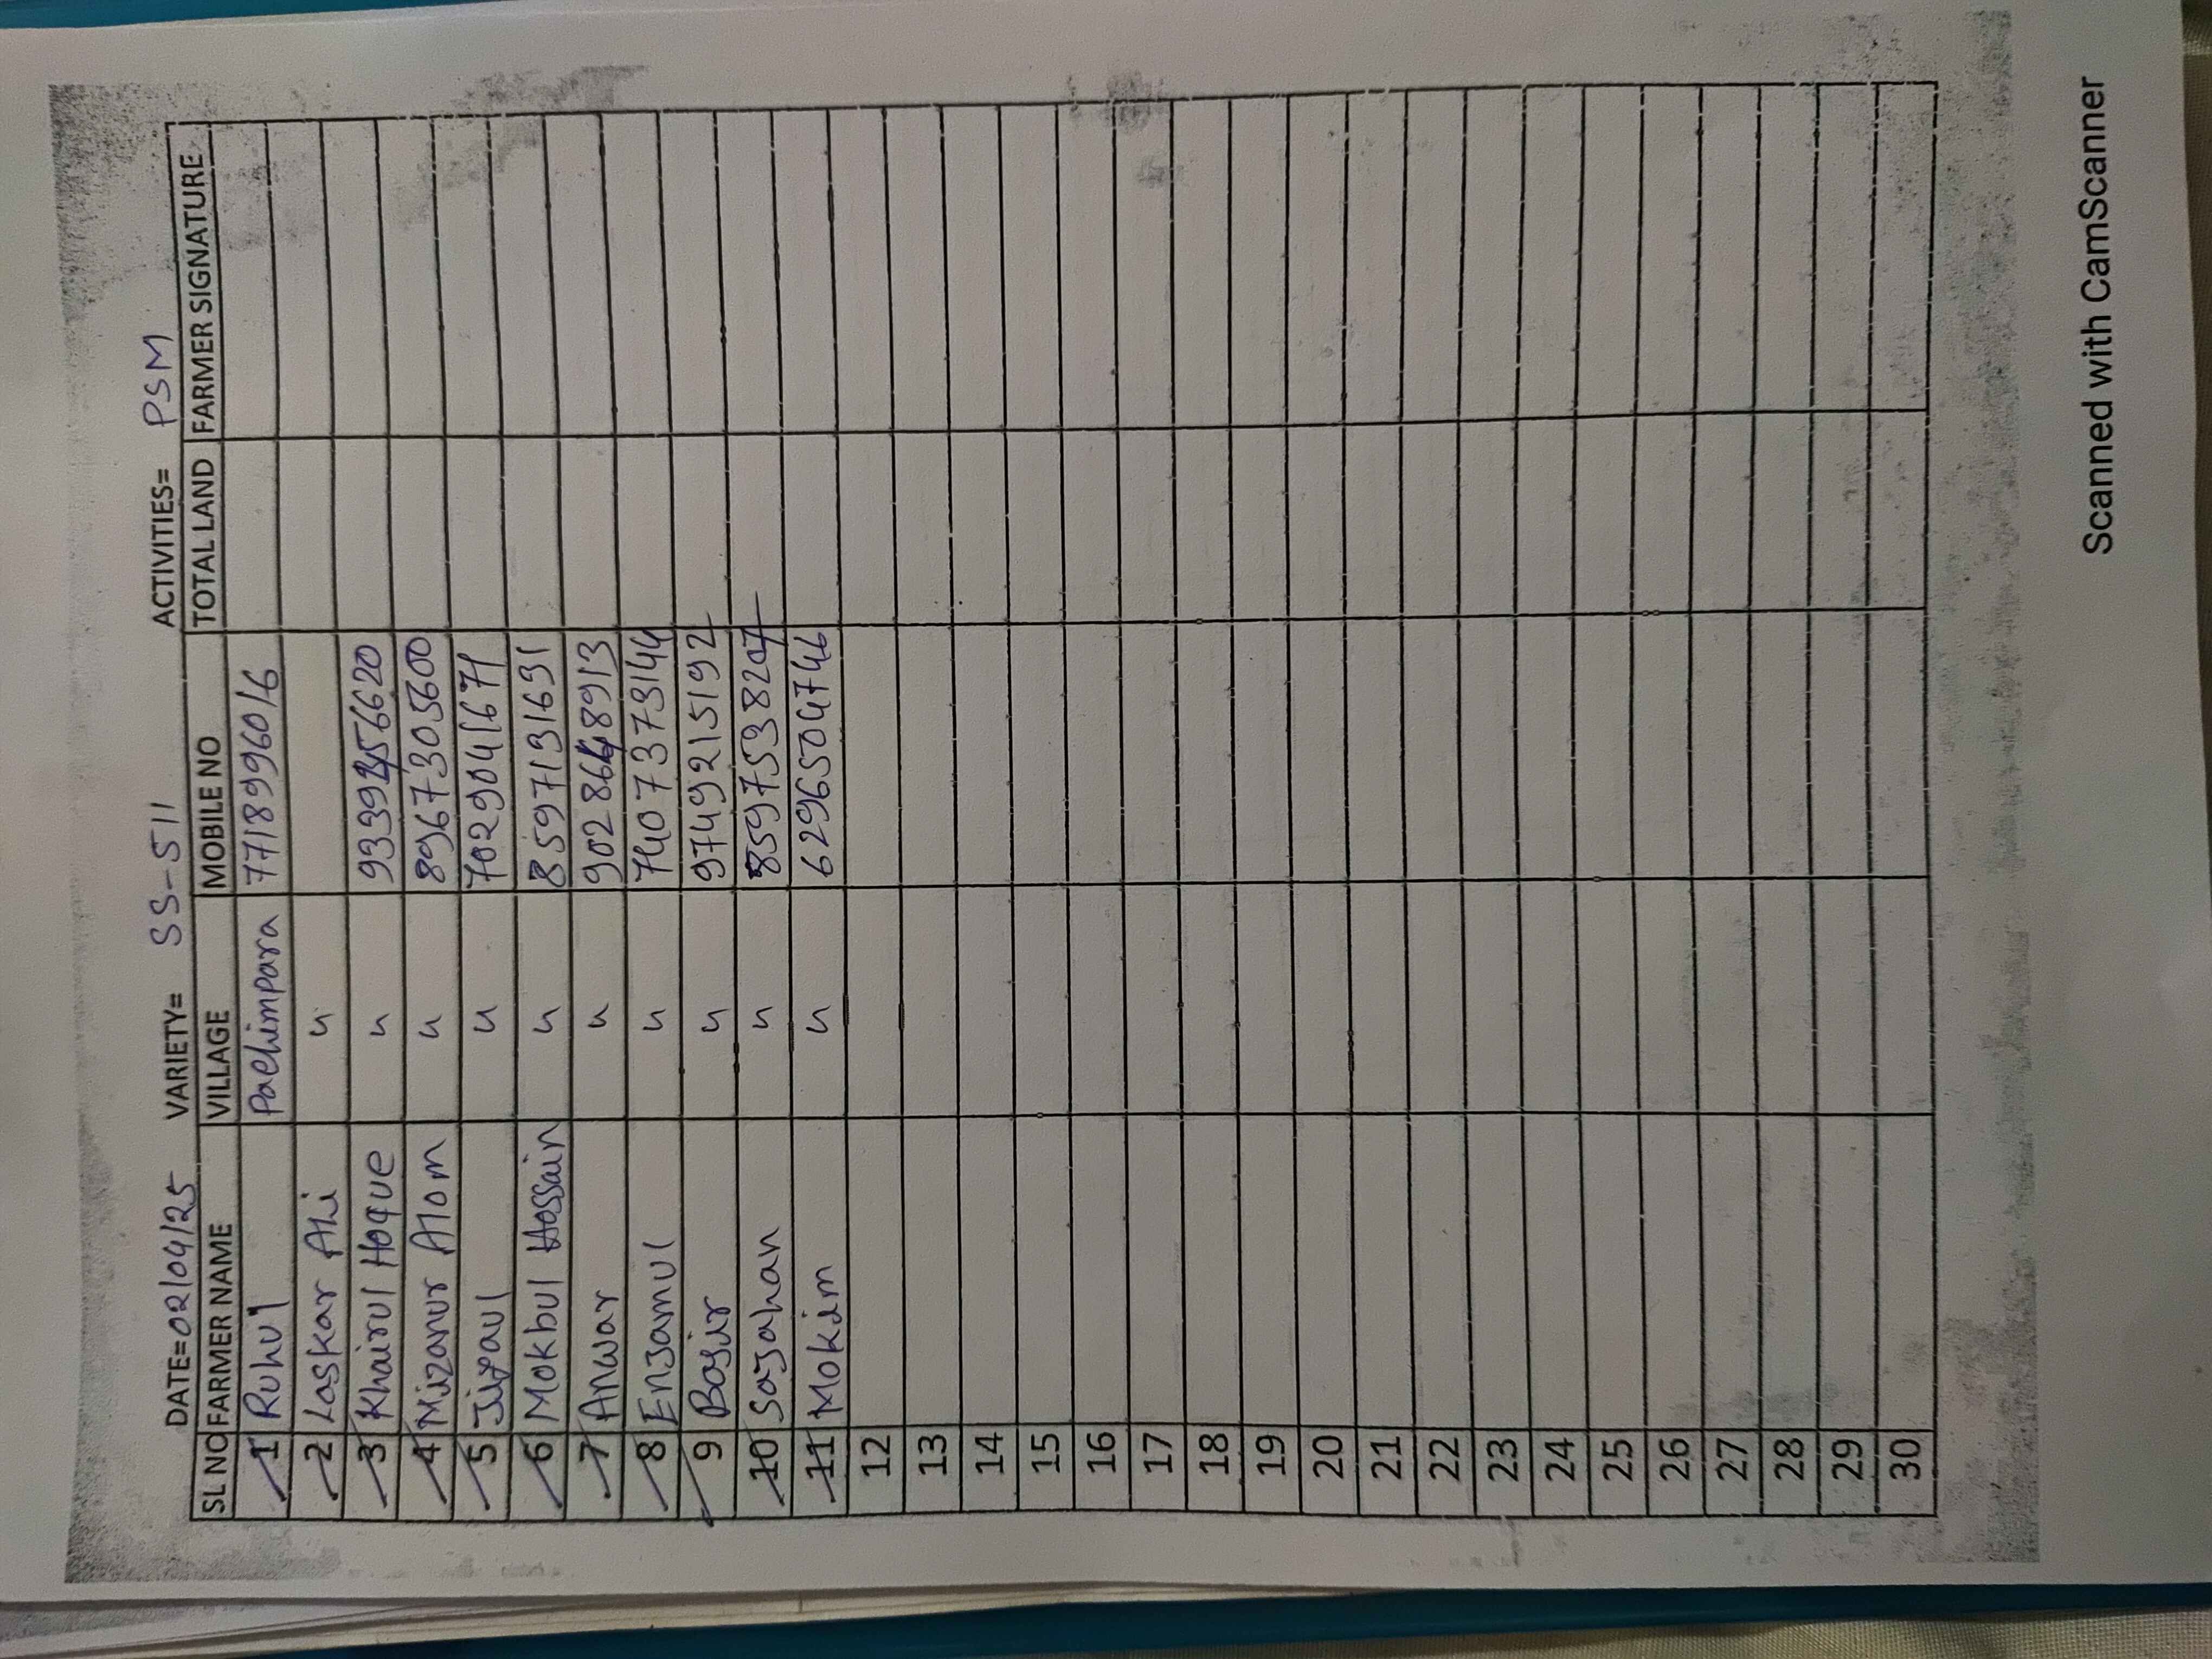 DATE=02/04/25 VARIETY= SS-511 ACTIVITIES= PSM
SL NO FARMER NAME VILLAGE MOBILE NO TOTAL LAND FARMER SIGNATURE
1 Ruhul Pachimpara 77189996016
2 Laskar Ali "
3 Khairul Hoque " 
4 Mizanur Alom " 8967305600
5 Jiyaul " 7029041671
6 Mokbul Hossain " 8597131631
7 Anwar " 
8 Enjamul " 7407373144
9 Basir " 9749215192
10 Sajahan " 8597538207
11 Mokim " 6296504746
12
13
14
15
16
17
18
19
20
21
22
23
24
25
26
27
28
29
30
Scanned with CamScanner